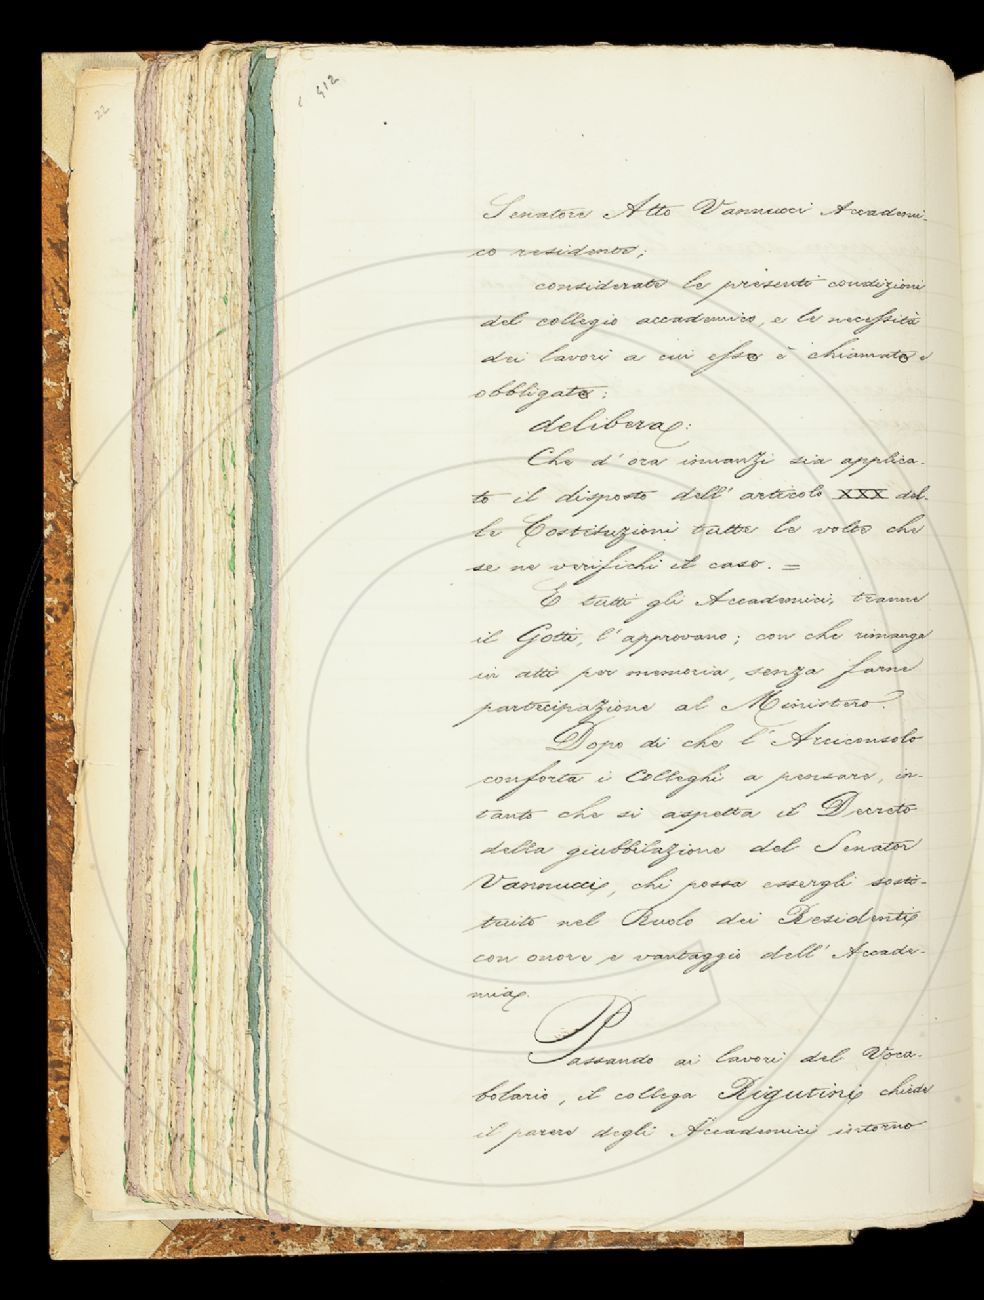 22
412
Senatore Atto Vannucci Accademi-
co residente;
considerate le presenti condizioni
del collegio accademico, e le necessità
dei lavori a cui esso è chiamato e
obbligato:
delibera:
Che d'ora innanzi sia applica-
to il disposto dell'articolo XXX del-
le Costituzioni tutte le volte che
se ne verifichi il caso. =
E tutti gli Accademici, tranne
il Gotti, l'approvano; con che rimanga
in atti per memoria, senza farne
partecipazione al Ministero.
Dopo di che l'Arciconsolo
conforta i Colleghi a pensare, in-
tanto che si aspetta il Decreto
della giubbilazione del Senator
Vannucci, chi possa essergli sosti-
tuito nel Ruolo dei Residenti
con onore e vantaggio dell'Accade-
mia.
Passando ai lavori del Voca-
bolario, il collega Rigutini chiede
il parere degli Accademici intorno